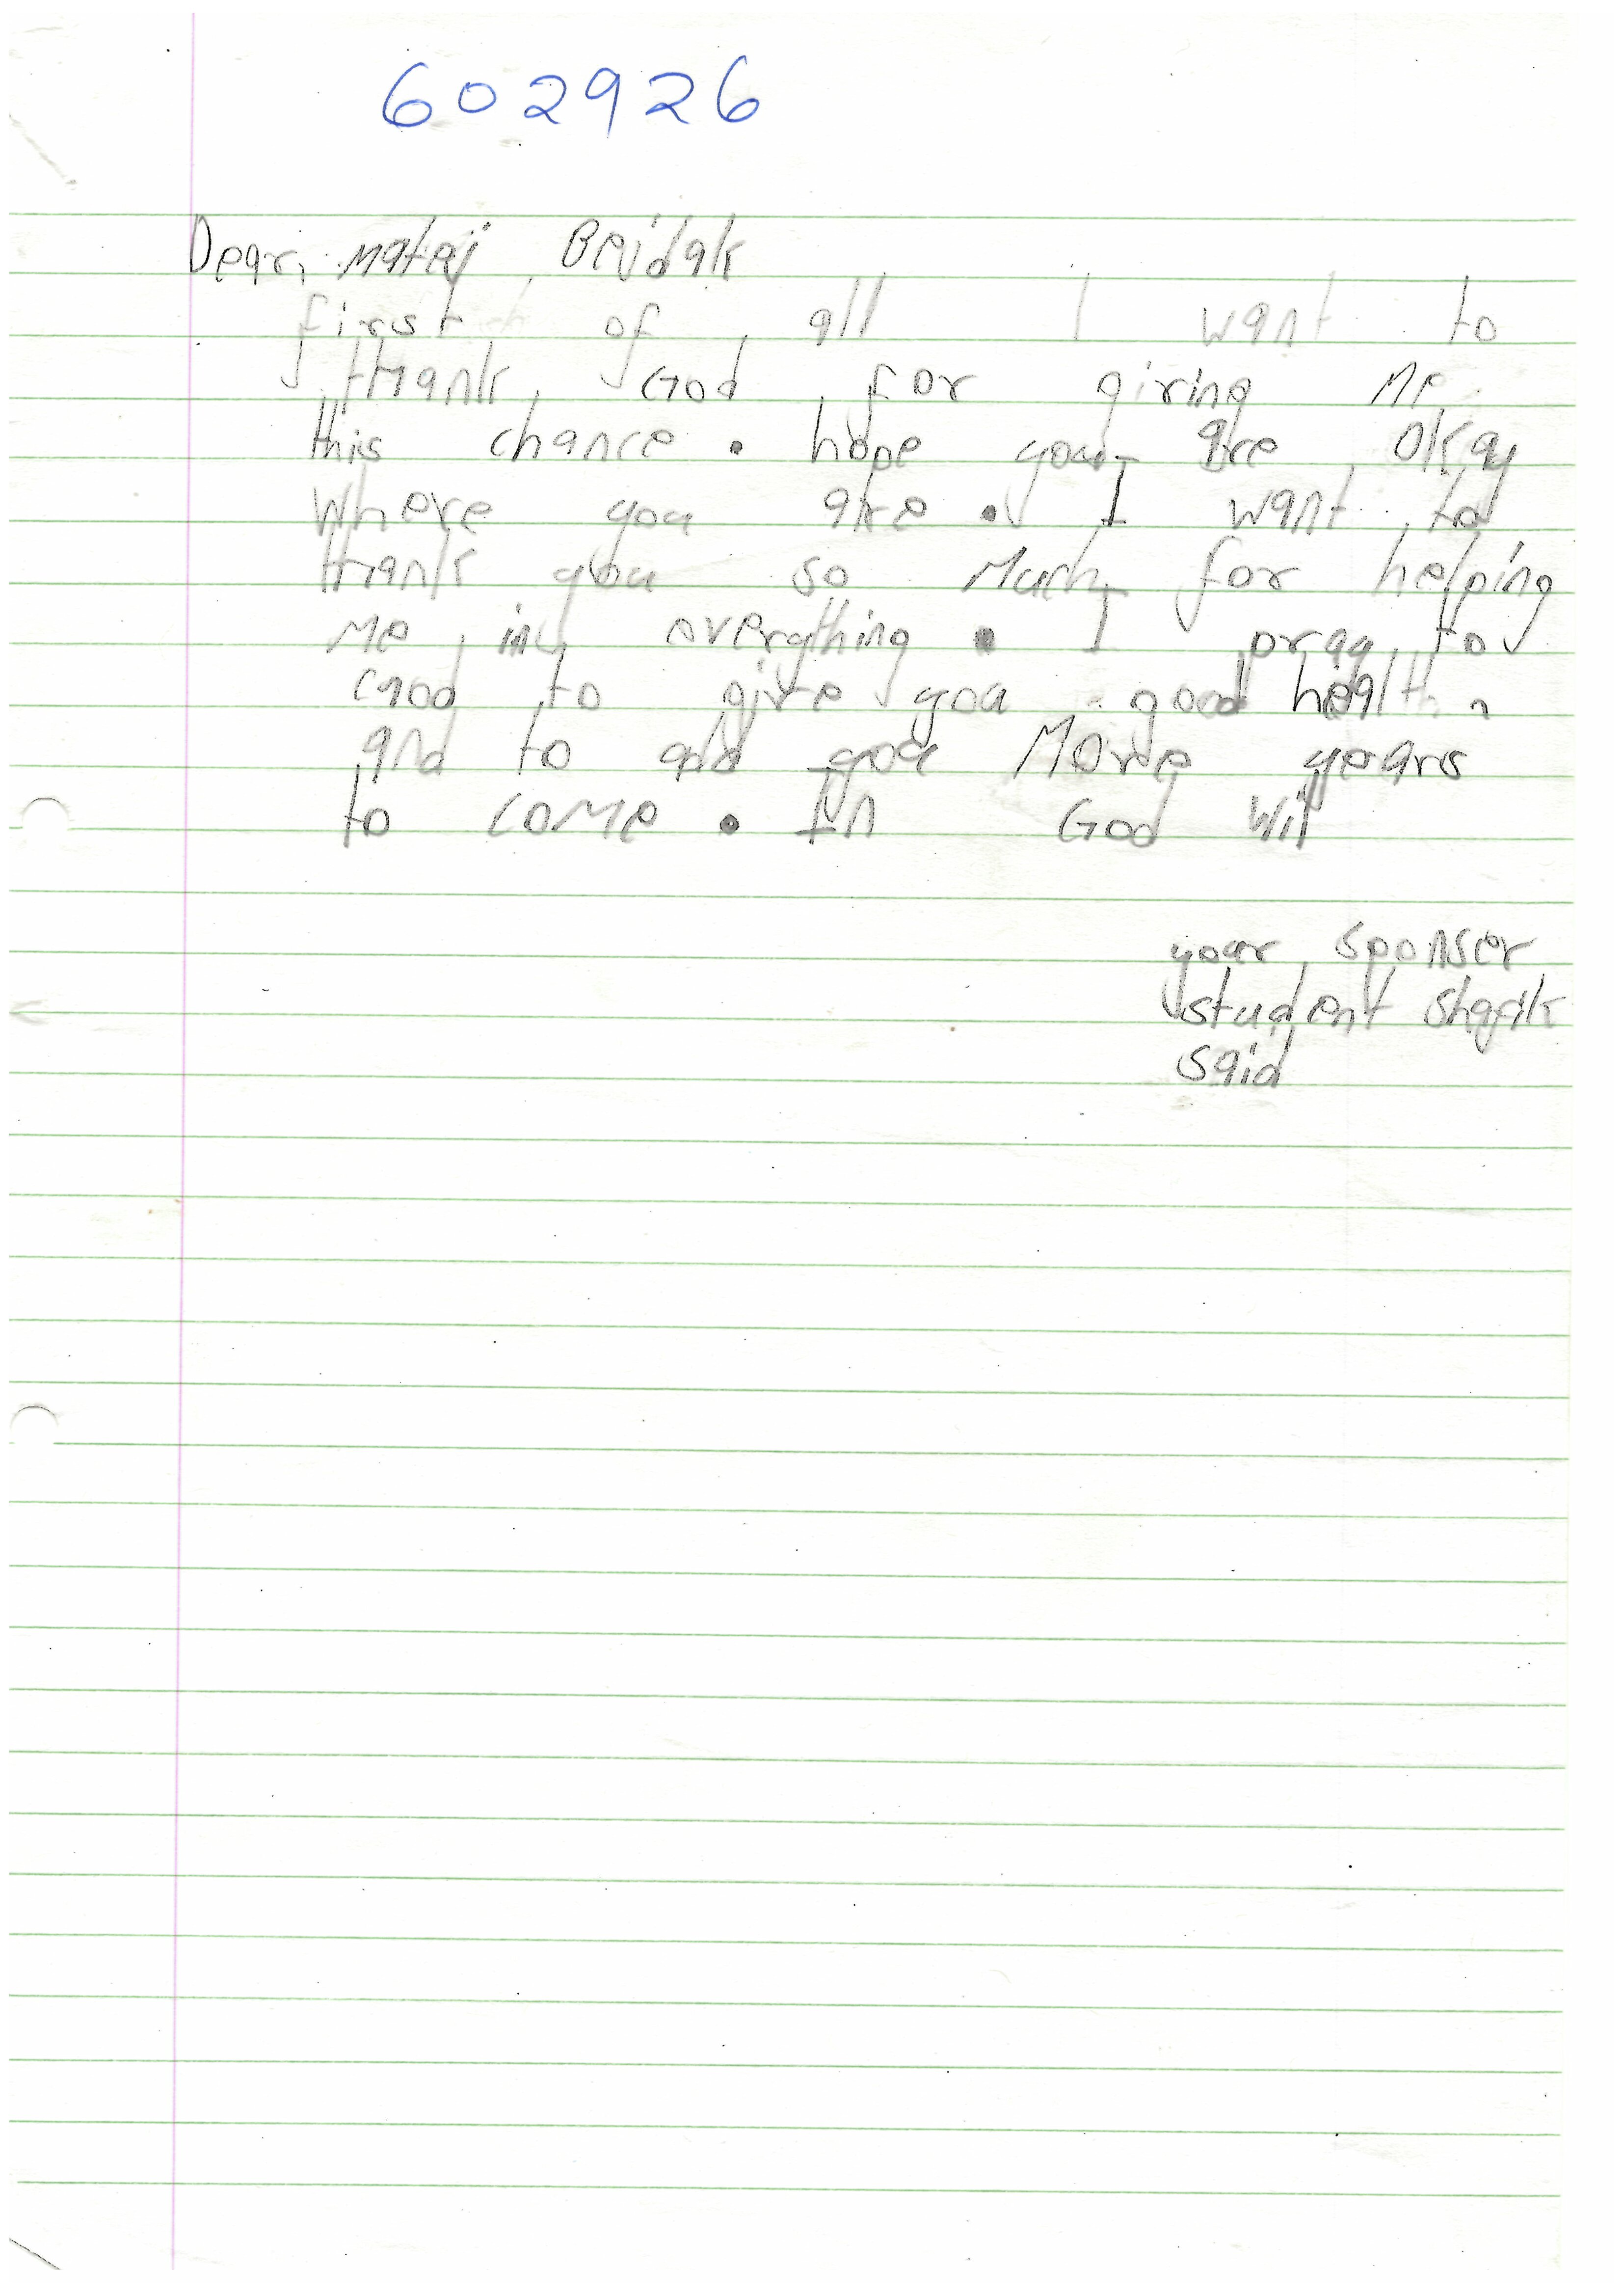 602926
Dear, matej Bejdak
first of all I want to
thank God for giving Me
this chance. hope you are okay
Where you are. I want to
thank you so Much for helping
Me in everything. I pray to
God to give you good health,
and to add you More years
to come. In God wil
your sponser
student Shafik
Said